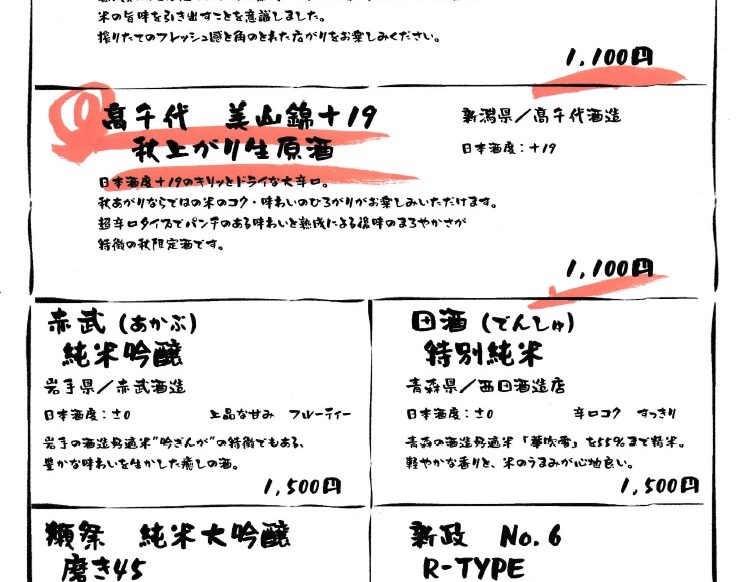 米の旨味を引き出すことを意識しました。
搾りたてのフレッシュ感と角のとれた広がりをお楽しみください。
1,100円
高千代 美山錦+19
秋上がり生原酒
新潟県/高千代酒造
日本酒度:+19
日本酒度+19のキリッとドライな大辛口。
秋あがりならではの米のコク・味わいのひろがりがお楽しみいただけます。
超辛口タイプでパンチのある味わいと熟成による後味のまろやかさが
特徴の秋限定酒です。
1,100円
赤武(あかぶ)
純米吟醸
岩手県/赤武酒造
日本酒度:±0 上品な甘み フルーティー
岩手の酒造好適米"吟ぎんが"の特徴でもある、
豊かな味わいを生かした癒しの酒。
1,500円
田酒(でんしゅ)
特別純米
青森県/西田酒造店
日本酒度:±0 辛口コク すっきり
青森の酒造好適米「華吹雪」を55%まで精米。
軽やかな香りと、米のうまみが心地良い。
1,500円
獺祭 純米大吟醸
磨き45
新政 No.6
R-TYPE